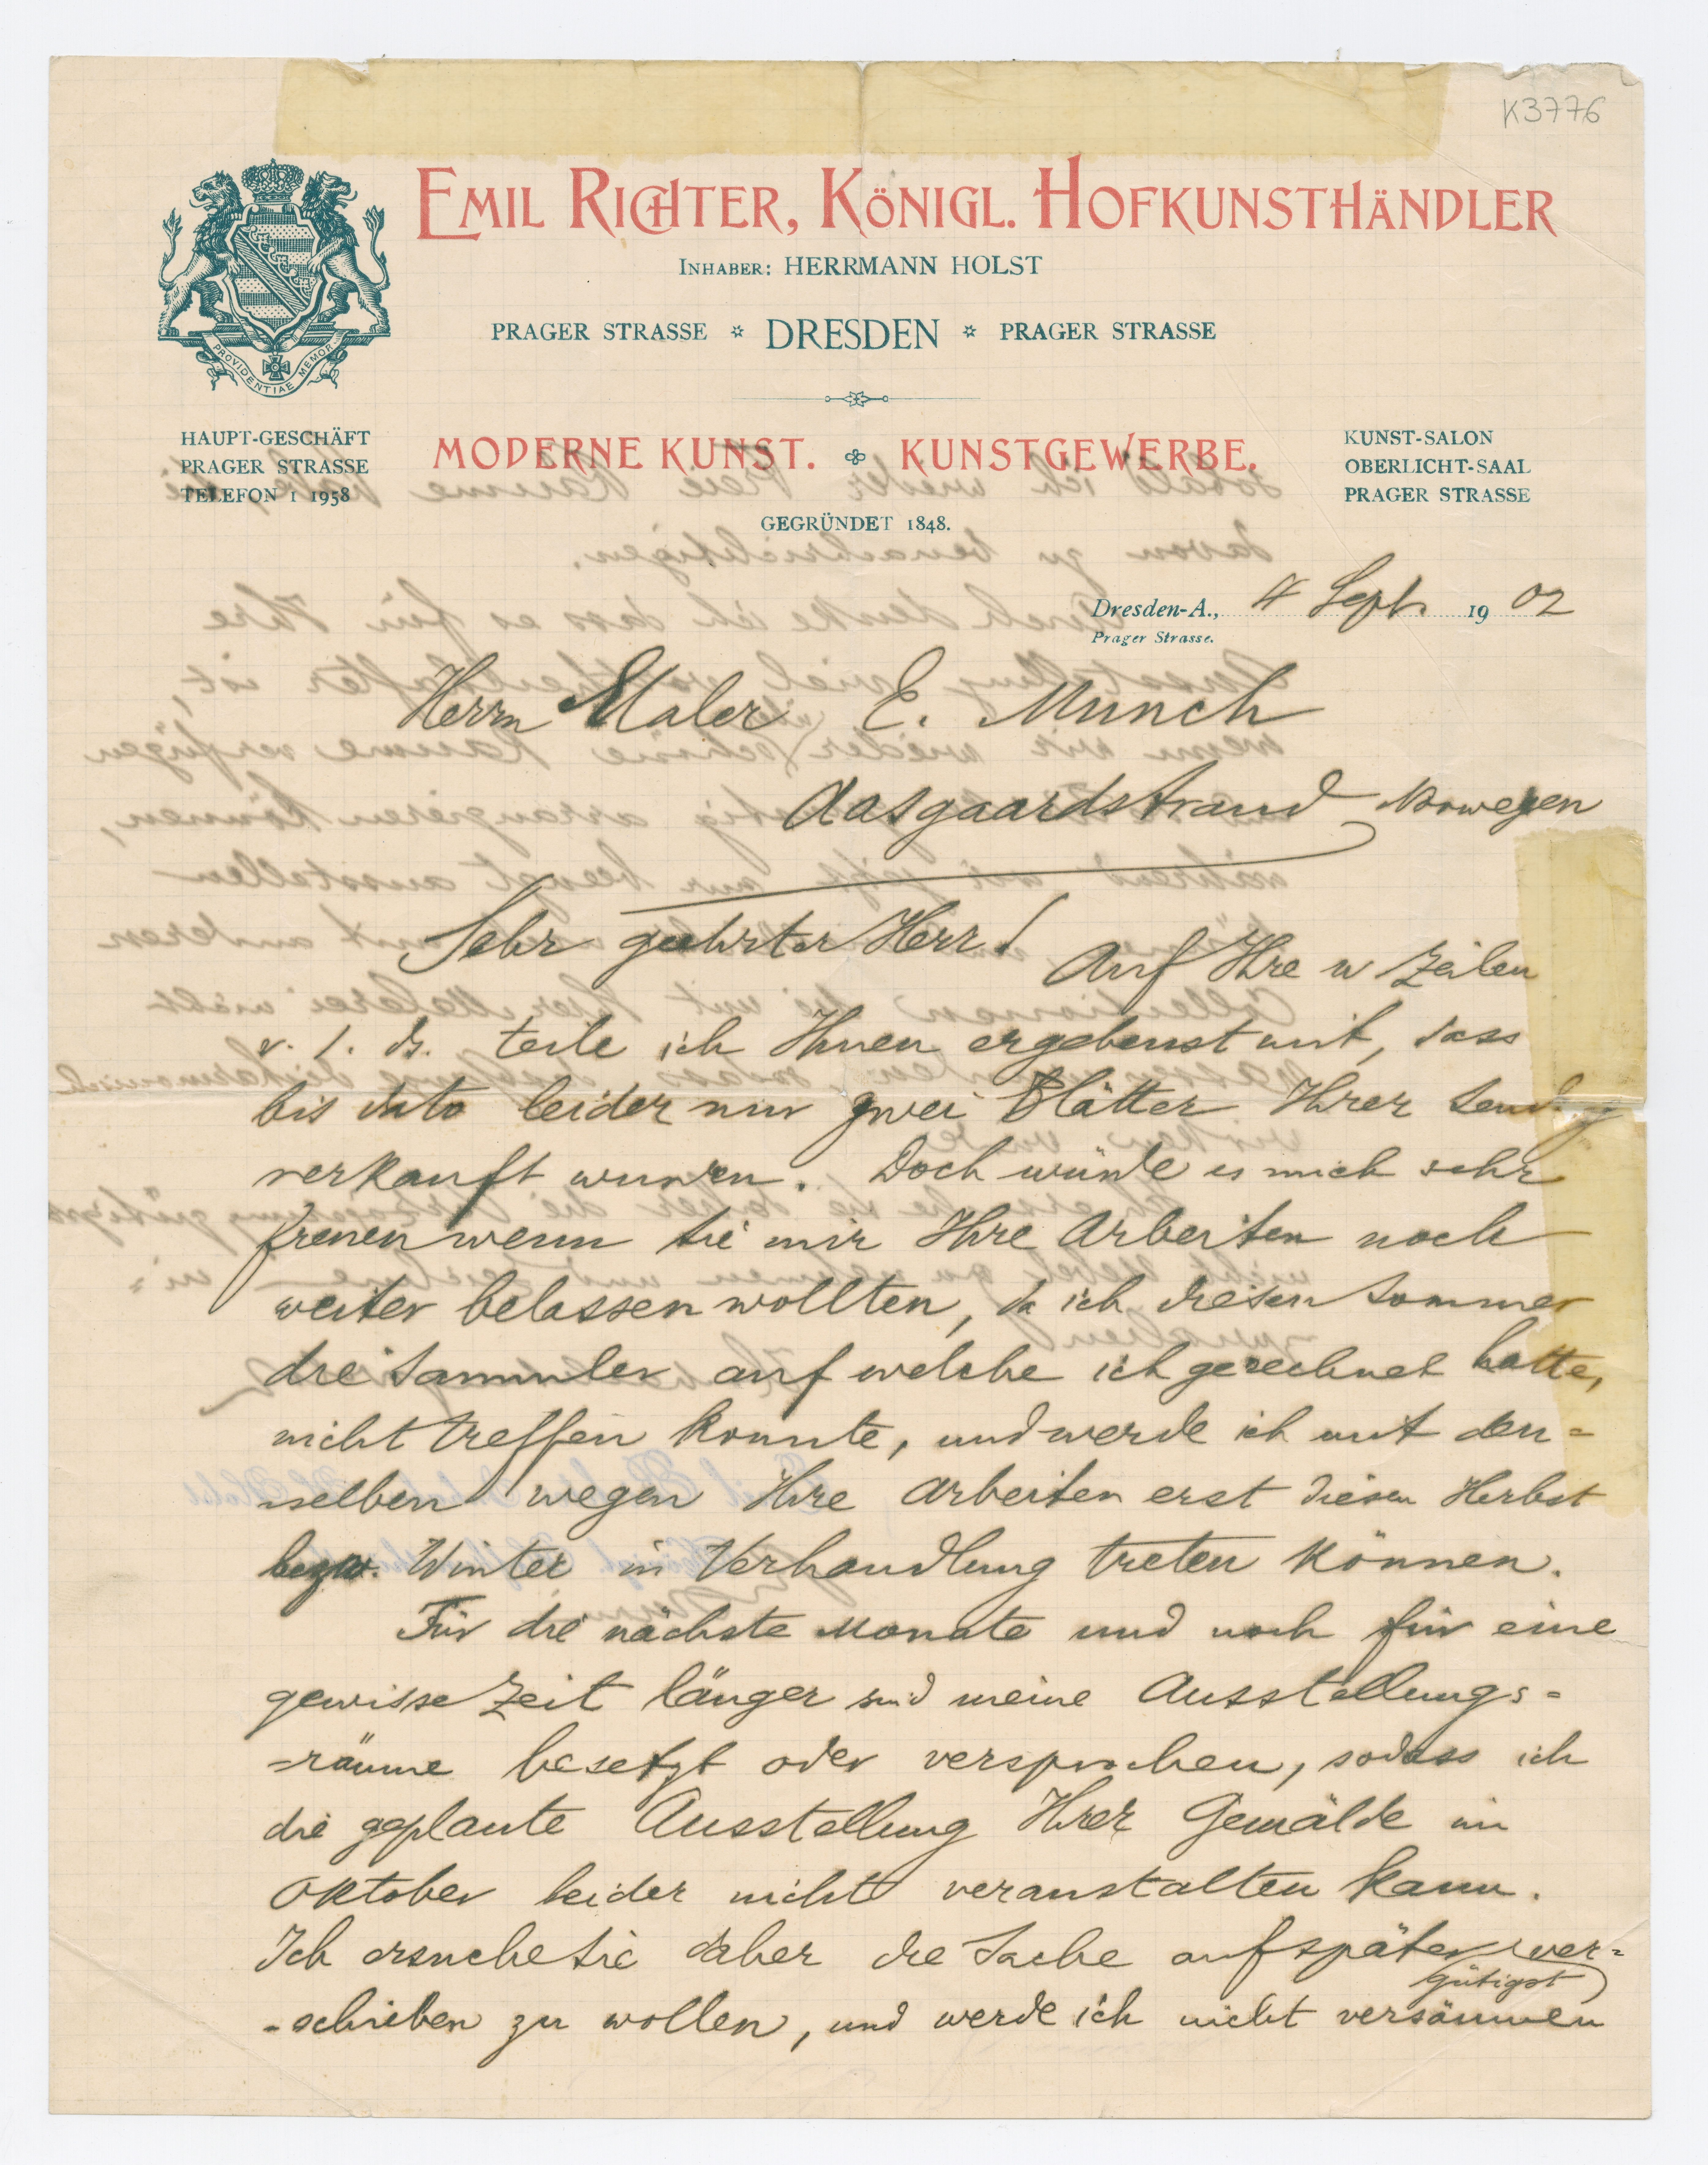 K3776
EMIL RICHTER, KÖNIGL. HOFKUNSTHÄNDLER
INHABER: HERRMANN HOLST
PRAGER STRASSE * DRESDEN * PRAGER STRASSE
PROVIDENTIAE MEMOR
HAUPT-GESCHÄFT
PRAGER STRASSE
TELEFON I 1958
MODERNE KUNST. KUNSTGEWERBE.
GEGRÜNDET 1848.
KUNST-SALON
OBERLICHT-SAAL
PRAGER STRASSE
Dresden-A., 4 Sept. 1902
Prager Strasse.
Herrn Maler E. Munch
Aasgaardstrand Norwegen
Sehr geehrter Herr!
Auf Ihre w Zeilen
v. 1. ds. teile ich Ihnen ergebenst mit, dass
bis dato leider nur zwei Blätter Ihrer Sendg
verkauft wurden. Doch würde es mich sehr
freuen wenn Sie mir Ihre Arbeiten noch
weiter belassen wollten, da ich diesen Sommer
die Sammler auf welche ich gerechnet hatte,
nicht treffen konnte, und werde ich mit den=
-selben wegen Ihre Arbeiten erst diesen Herbst
bezw. Winter in Verhandlung treten können.
Für die nächste Monate und noch für eine
gewisse Zeit länger sind meine Ausstellungs=
=räume besetzt oder versprochen, sodass ich
die geplante Ausstellung Ihrer Gemälde im
Oktober leider nicht veranstalten kann.
Ich ersuche Sie daher die Sache auf später ver=
gütigst
-schieben zu wollen, und werde ich nicht versäumen